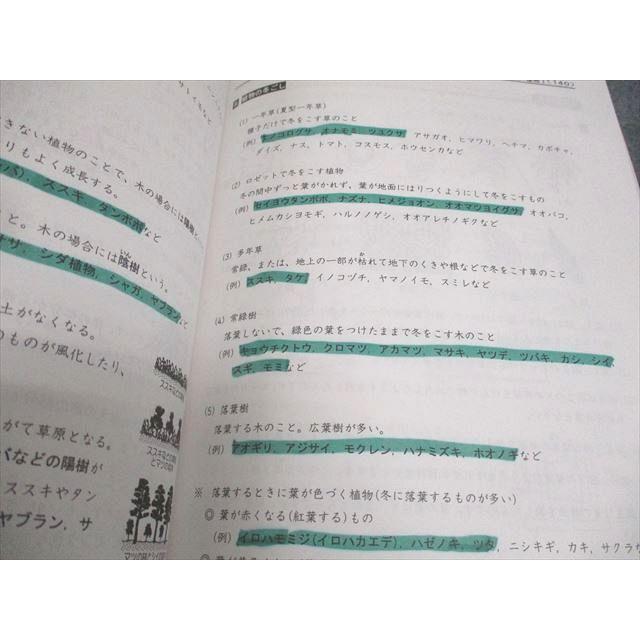 きない植物のことで、木の場合には陽樹と
りもよく成長する。
バ), ススキ, タンポポなど
と。木の場合には陰樹という。
サ, シダ植物, シャガ, ヤブランなど
土がなくなる。
のものが風化したり、
ススキなどの草原
とマツの幼木
がて草原となる。
バなどの陽樹が
ススキやタン
ヤブラン, サ
植物の冬ごし
(1) 一年草(夏型一年草)
種子だけで冬をこす草のこと
(例) エノコログサ, オナモミ, ツユクサ, アサガオ, ヒマワリ, ヘチマ, カボチャ,
ダイズ, ナス, トマト, コスモス, ホウセンカなど
(2) ロゼットで冬をこす植物
冬の間中ずっと葉がかれず、葉が地面にはりつくようにして冬をこすもの
(例) セイヨウタンポポ, ナズナ, ヒメジョオン, オオマツヨイグサ, オオバコ,
ヒメムカシヨモギ, ハルノノゲシ, オオアレチノギクなど
(3) 多年草
常緑、または、地上の一部が枯れて地下のくきや根などで冬をこす草のこと
(例) ススキ, タケ, イノコヅチ, ヤマノイモ, スミレなど
(4) 常緑樹
落葉しないで、緑色の葉をつけたままで冬をこす木のこと
(例) キョウチクトウ, クロマツ, アカマツ, マサキ, ヤツデ, ツバキ, カシ, シイ,
スギ, モミなど
(5) 落葉樹
落葉する木のこと。広葉樹が多い。
(例) アオギリ, アジサイ, モクレン, ハナミズキ, ホオノキなど
※ 落葉するときに葉が色づく植物(冬に落葉するものが多い)
◎ 葉が赤くなる(紅葉する)もの
(例) イロハモミジ(イロハカエデ), ハゼノキ, ツタ, ニシキギ, カキ, サクラ